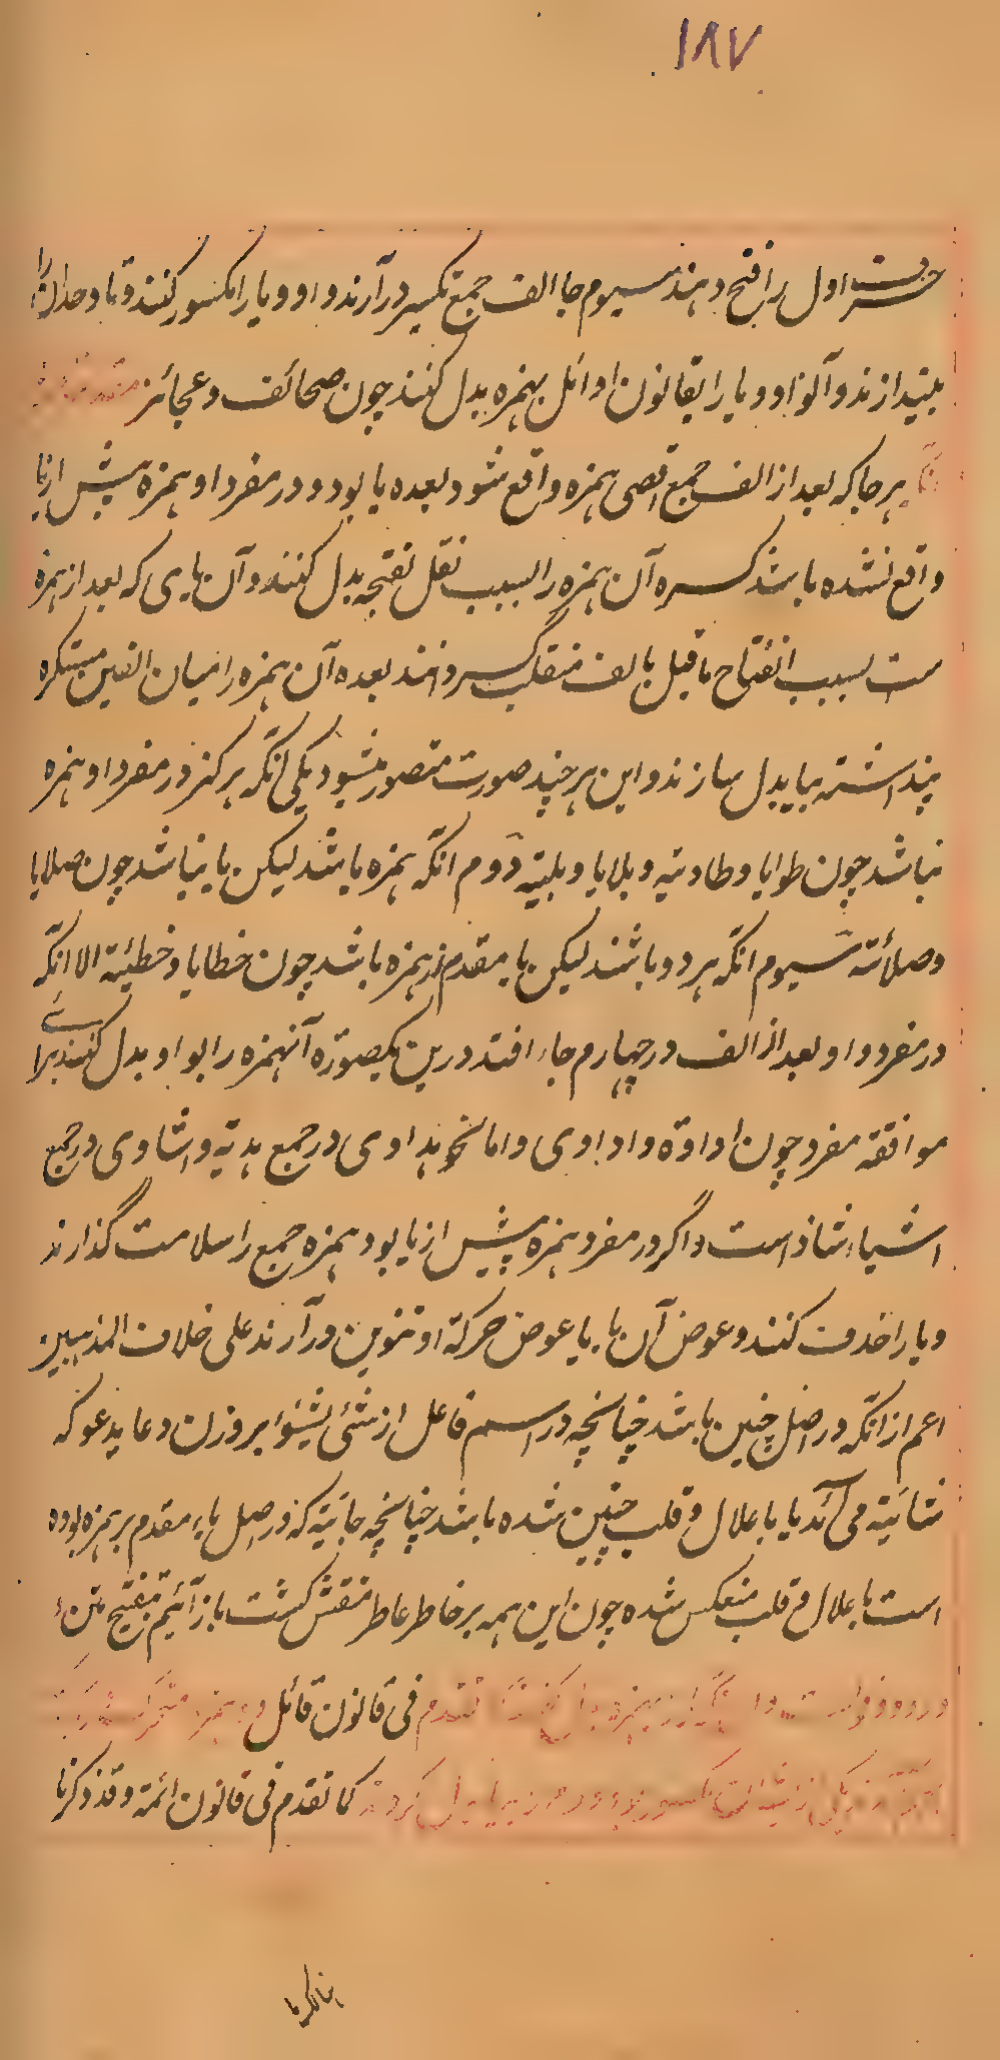 ۱۸۷
حرف اول را فتح دهند سیوم جا الف جمع تکسیر در آرند و او و یا را مکسور کنند و تا و حدان را
بیندازند و آن واو و یا را بقانون اوائل بهمزه بدل کنند چون صحائف و عجائز
هر جا که بعد از الف جمع اقصی همزه واقع شود بعده یا بود و در مفرد او همزه پیش از یا
واقع نشده باشد کسره آن همزه را بسبب ثقل بفتحه بدل کنند و آن یای که بعد از همزه
است بسبب انفتاح ماقبل بالف منقلب گردانند بعده آن همزه را میان الفین مستکره
پنداشته بیا بدل سازند و این هر چند صورت متصور میشود یکی آنکه هرگز در مفرد او همزه
نباشد چون طوایا و طاویه و بلایا و بلیه دوم آنکه همزه باشد لیکن یا نباشد چون صلایا
و صلائة سیوم آنکه هر دو باشند لیکن یا مقدم از همزه باشد چون خطایا و خطیئة الا آنکه
در مفرد واو بعد از الف در چهارم جاء افتد درین یکصورة آنهمزه را بواو بدل کنند برای
موافقة مفرد چون اداوة و اداوی و اما نحو هداوی در جمع هدیة و اشاوی در جمع
اشیاء شاذ است و اگر در مفرد همزه پیش از یا بود همزه جمع را سلامت گذارند
و یا را حذف کنند و عوض آن یا، یا عوض حرکة او تنوین در آرند علی خلاف المذهبین
اعم از انکه در اصل چنین باشد چنانچه در اسم فاعل از شئی یشئو بر وزن دعا یدعو که
شائیة می آید یا باعلال و قلب چنین شده باشد چنانچه جائیة که در اصل یاء مقدم بر همزه بوده
است باعلال و قلب منعکس شده چون این همه بر خاطر عاطر منقش گشت باز آئیم بتنقیح متن
تقدم فی قانون قائل و همزه
مکسور بود کما تقدم فی قانون ائمة و قد ذکرنا